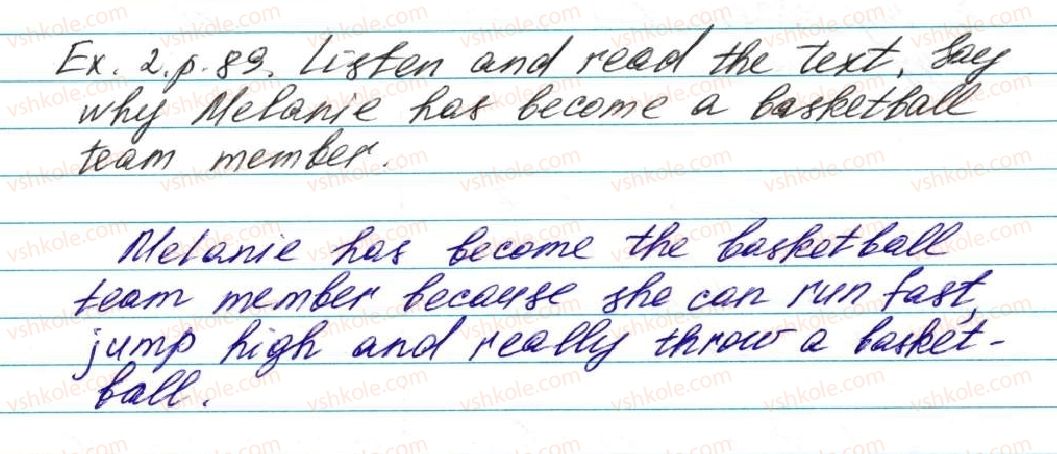 Ex. 2. p. 89. Listen and read the text. Say
why Melanie has become a basketball
team member.
Melanie has become the basketball
team member because she can run fast,
jump high and really throw a basket-
ball.